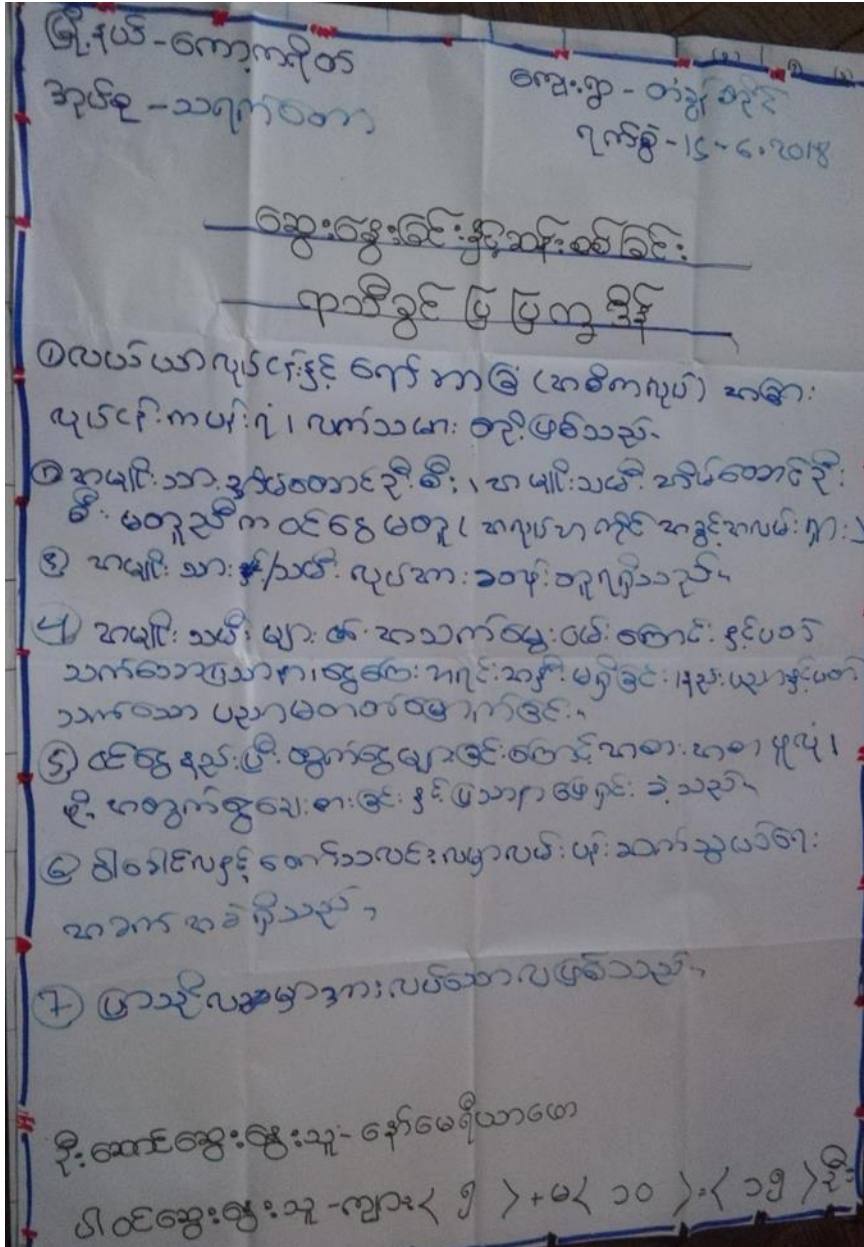 မြို့နယ် - ကော့ကရိတ်
ကျေးရွာ - တံခွန်တိုင်
အုပ်စု - သရက်တော
ရက်စွဲ - 15-6-2018
ဆွေးနွေးခြင်းနှင့်ဆန်းစစ်ခြင်း
ရာသီခွင် ပြ ပြက္ခဒိန်
① လယ်ယာလုပ်ငန်းနှင့် ရော်ဘာခြံ (အဓိကလုပ်) အခြား
လုပ်ငန်းကပန်းရံ၊ လက်သမား တို့ဖြစ်သည်-
② အမျိုးသားအိမ်ထောင်ဦးစီး၊ အမျိုးသမီးအိမ်ထောင်ဦး
စီး မတူညီက ဝင်ငွေမတူ၊ အလုပ်အကိုင် အခွင့်အလမ်းရှား
③ အမျိုးသား/သမီး လုပ်အားခတန်းတူရရှိသည်။
4 အမျိုးသမီးများ အသက်မွေးဝမ်းကြောင်းနှင့်ပတ်
သက်သောပြဿနာ၊ ငွေကြေးအရင်းအနှီး မရှိခြင်း၊ နည်းပညာနှင့်ပတ်
သက်သော ပညာမတတ်မြောက်ခြင်း။
5 ဝင်ငွေနည်းပြီး ထွက်ငွေများခြင်းကြောင့် အစားအစာ ဖူလုံ၊
ဖို့ အတွက်ချွေးစားခြင်းနှင့် ပြဿနာဖြေရှင်းခဲ့သည်။
6 ဝါခေါင်လနှင့် တော်သလင်းလမှာလမ်းပန်းဆက်သွယ်ရေး
အခက်အခဲရှိသည်။
7 ပြာသိုလမှာအားလပ်သောလဖြစ်သည်။
ဦးဆောင်ဆွေးနွေးသူ - နော်မေရီယာဖော
ပါဝင်ဆွေးနွေးသူ - ကျား < ၅ > + မ < ၁၀ > = < ၁၅ > ဦး